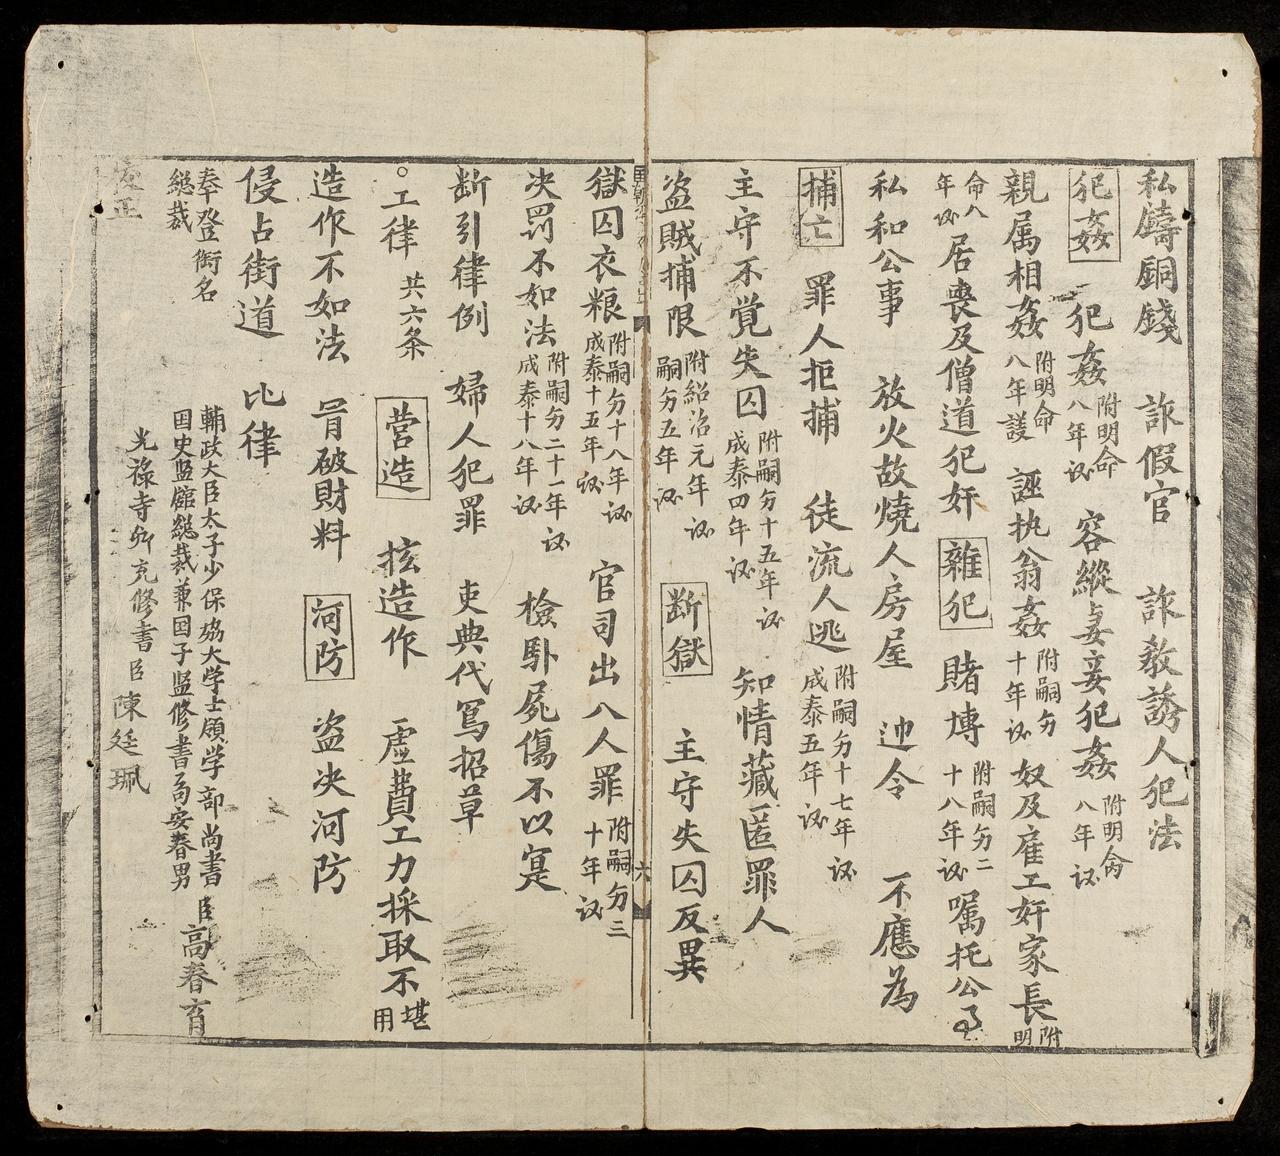 私鑄銅錢 詐假官 詐教誘人犯法
犯姦 犯姦 附明命八年议 容縱妻妾犯姦 附明命八年议
親属相姦 附明命八年議 誣执翁姦 附嗣𡗉十年议 奴及雇工奸家長 附明
命八年议 居喪及僧道犯奸 雜犯 賭博 附嗣𡗉二十八年议 嘱托公事
私和公事 放火故燒人房屋 违令 不應為
捕亡 罪人拒捕 徒流人逃 附嗣𡗉十七年议 成泰五年议
主守不覚失囚 附嗣𡗉十五年议 成泰四年议 知情藏匿罪人
盗賊捕限 附紹治元年议 嗣𡗉五年议 断獄 主守失囚反異
獄囚衣粮 附嗣𡗉十八年议 成泰十五年议 官司出入人罪 附嗣𡗉三十年议
决罚不如法 附嗣𡗉二十一年议 成泰十八年议 檢驗屍傷不以寔
断引律例 婦人犯罪 吏典代寫招草
。工律 共六条 营造 擅造作 虚費工力採取不堪用
造作不如法 冒破財料 河防 盗决河防
侵占街道 比律
奉登銜名
總裁 輔政大臣太子少保协大学士領学部尚書
国史监館總裁兼国子监修書局安春男 臣高春育
光禄寺卿充修書臣陳廷珮